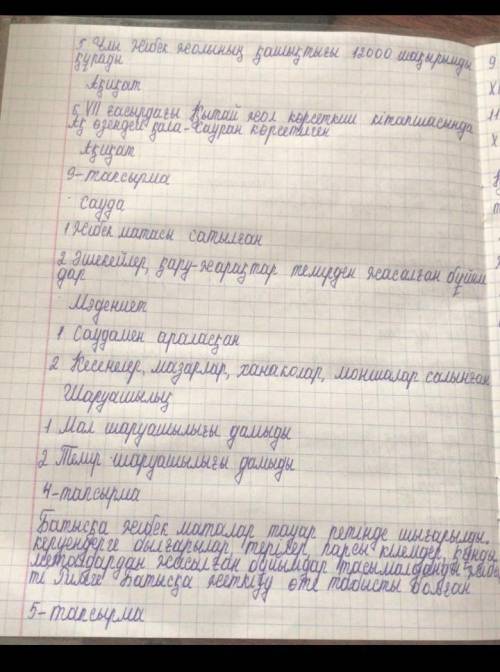 5. Ұлы Жібек жолының қашықтығы 12000 шақырымды
құрады
Ақиқат
6. VII ғасырдағы Қытай жол көрсеткіш кітапшасында
Ақ өзендегі қала - Сауран көрсетілген
Ақиқат
3-тапсырма
Сауда
1 Жібек матасы сатылған
2 Әшекейлер, қару-жарақтар темірден жасалған бұйым
дар
Мәдениет
1 Саудамен араласқан
2 Кесенелер, мазарлар, ханакалар, моншалар салынған
Шаруашылық
1 Мал шаруашылығы дамыды
2 Темір шаруашылығы дамыды
4-тапсырма
Батысқа жібек маталар тауар ретінде шығарылды.
керуендерге былғарылар, терілер, парсы кілемдер, құнды
металдардан жасалған бұйымдар тасымалданды
Батысқа жеткізу өте табысты болған
5-тапсырма
9
XI
11
X